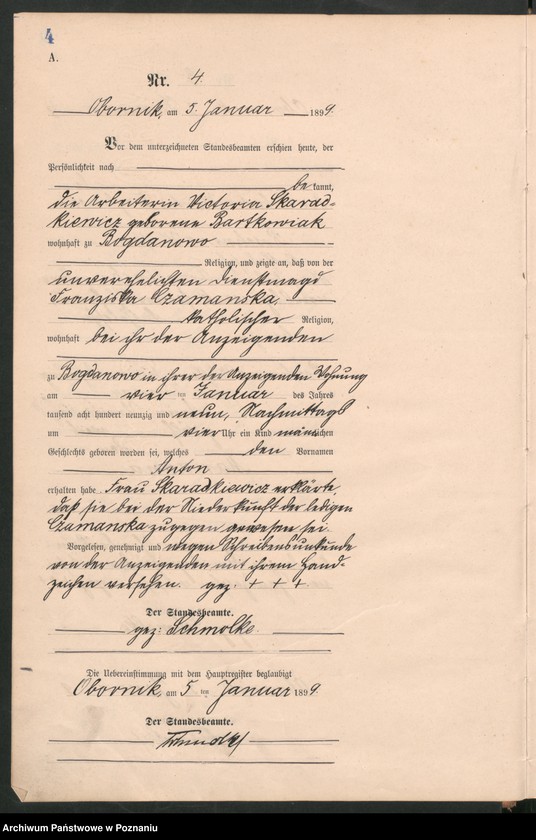 4
A.
Nr. 4
Obornik, am 5. Januar 1899.
Vor dem unterzeichneten Standesbeamten erschien heute, der
Persönlichkeit nach
be kannt,
die Arbeiterin Victoria Skarad-
kiewicz geborene Bartkowiak
wohnhaft zu Bogdanowo
Religion, und zeigte an, daß von der
unverehelichten Dienstmagd
Franziska Czamanska,
katholischer Religion,
wohnhaft bei ihr der Anzeigenden
zu Bogdanowo in ihrer der Anzeigenden Wohnung
am vier ten Januar des Jahres
tausend acht hundert neunzig und neun, Nachmittags
um vier Uhr ein Kind männlichen
Geschlechts geboren worden sei, welches den Vornamen
Anton
erhalten habe Frau Skaradkiewicz erklärte,
daß sie bei der Niederkunft der ledigen
Czamanska zugegen gewesen sei.
Vorgelesen, genehmigt und wegen Schreibensunkunde
von der Anzeigenden mit ihrem Hand-
zeichen versehen. gez: + + +
Der Standesbeamte.
gez: Schmolke.
Die Uebereinstimmung mit dem Hauptregister beglaubigt
Obornik, am 5 ten Januar 1899.
Der Standesbeamte.
Archiwum Państwowe w Poznaniu